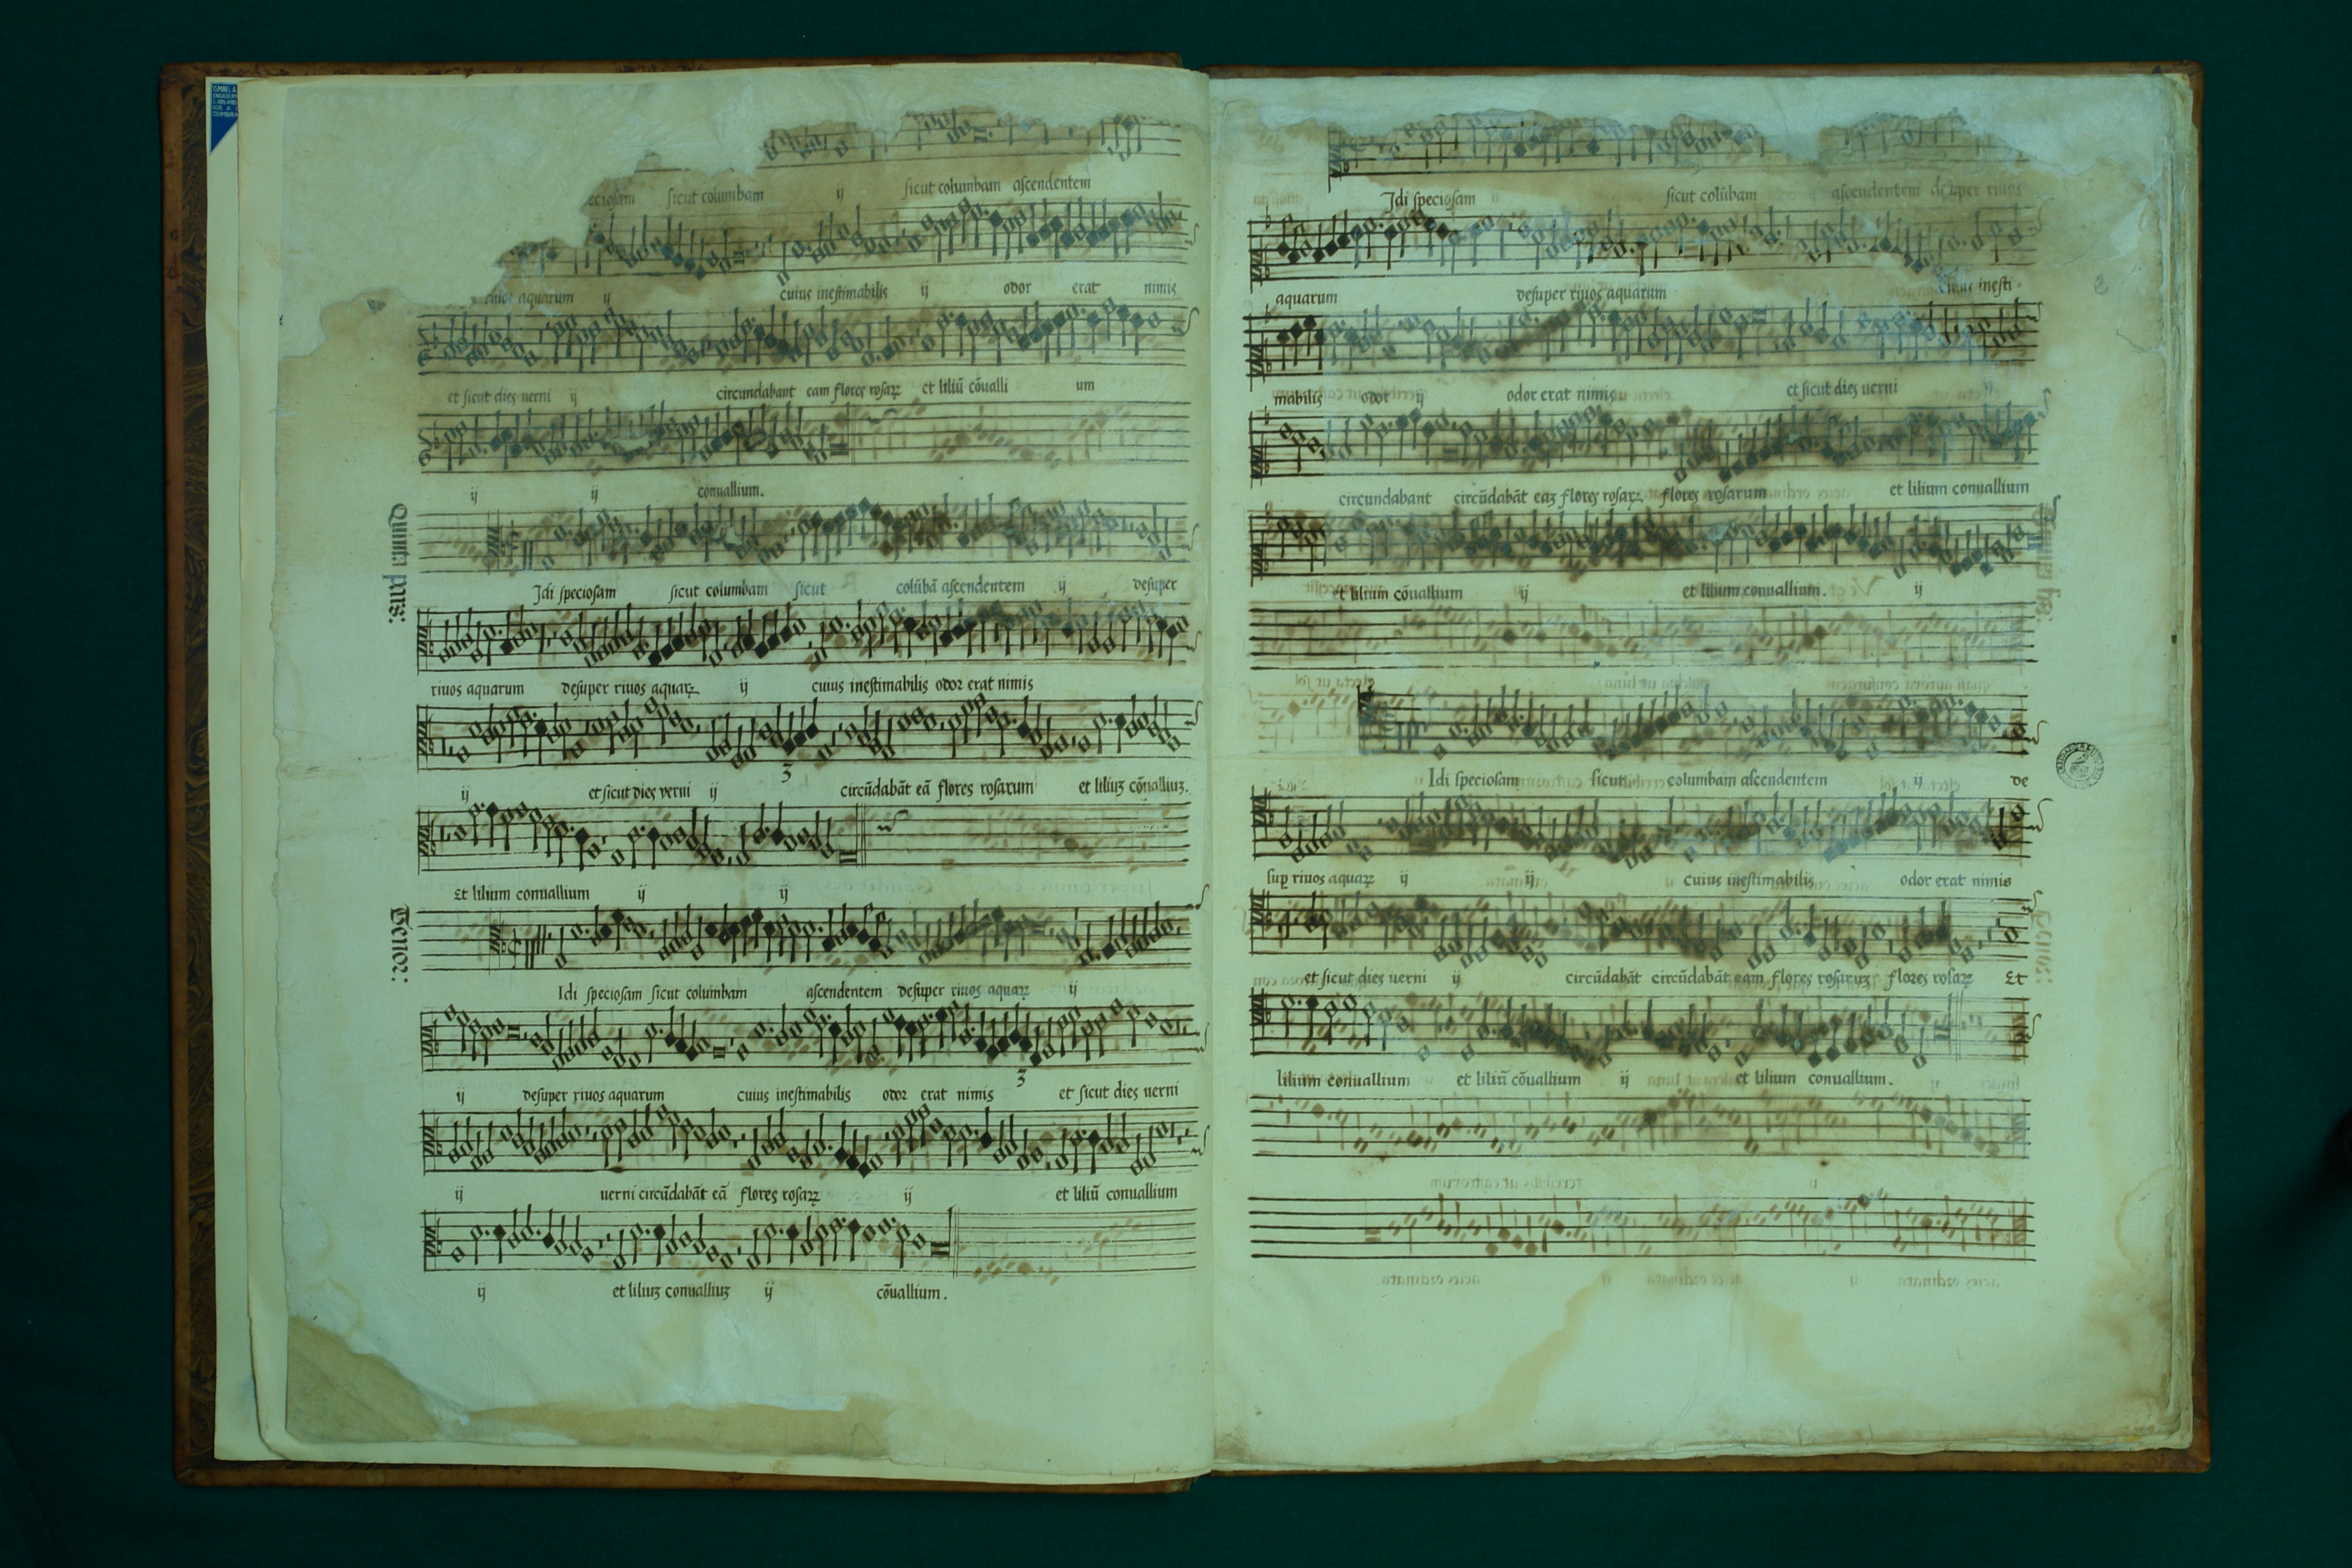 eciosam sicut columbam ij sicut columbam ascendentem
riuos aquarum ij cuius inestimabilis ij odor erat nimis
et sicut dies uerni ij circundabant eam flores rosaꝝ et liliũ cõualli um
ij ij conuallium.
Quinta pars:
Idi speciosam sicut columbam sicut colũbã ascendentem ij desuper
riuos aquarum desuper riuos aquaꝝ ij cuius inestimabilis odor erat nimis
3
ij et sicut dies verni ij circũdabãt eã flores rosarum et liliuʒ cõualliuʒ.
Et lilium conuallium ij ij
Tenor:
Idi speciosam sicut columbam ascendentem desuper riuos aquaꝝ ij
3
ij desuper riuos aquarum cuius inestimabilis odor erat nimis et sicut dies uerni
ij uerni circũdabãt eã flores rosaꝝ ij et liliũ conuallium
ij et liliuʒ conualliuʒ ij cõuallium.
Idi speciosam sicut colũbam ascendentem desuper riuos
2
aquarum desuper riuos aquarum cuius inesti-
mabilis odor ij odor erat nimis et sicut dies uerni ij
circundabant circũdabãt eaʒ flores rosaꝝ flores rosarum et lilium conuallium
et lilium cõuallium ij et lilium conuallium. ij
Idi speciosam sicut columbam ascendentem ij de
suꝑ riuos aquaꝝ ij ij cuius inestimabilis odor erat nimis
et sicut dies uerni ij circũdabãt circũdabãt eam flores rosaruʒ flores rosaꝝ Et
lilium conuallium et liliũ cõuallium ij et lilium conuallium.